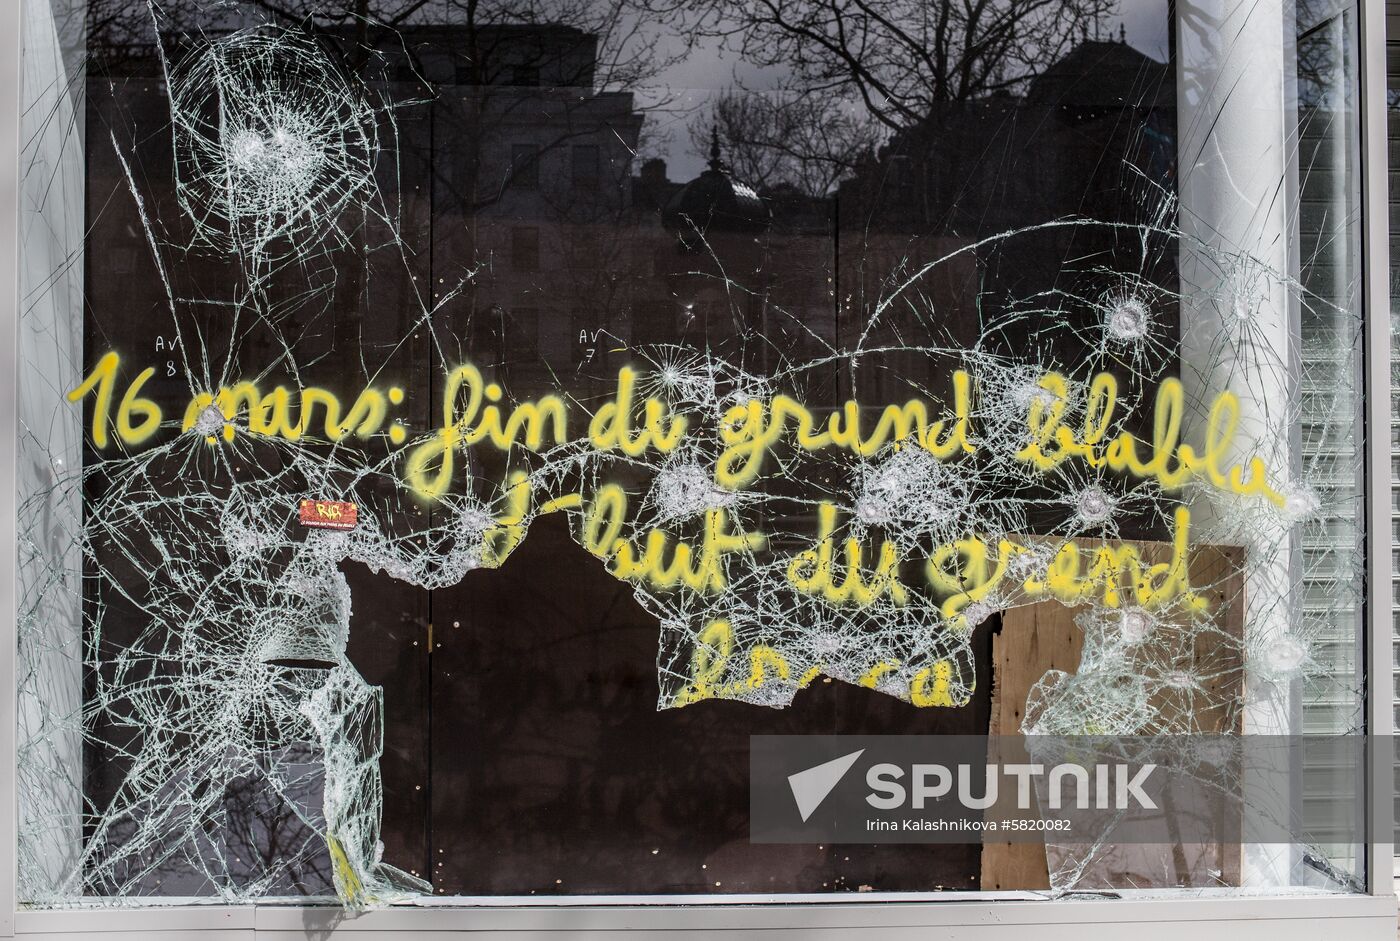 AV
8
AV
7
16 mars: fin du grand blabla
du grand
RIC
SPUTNIK
Irina Kalashnikova 5820082